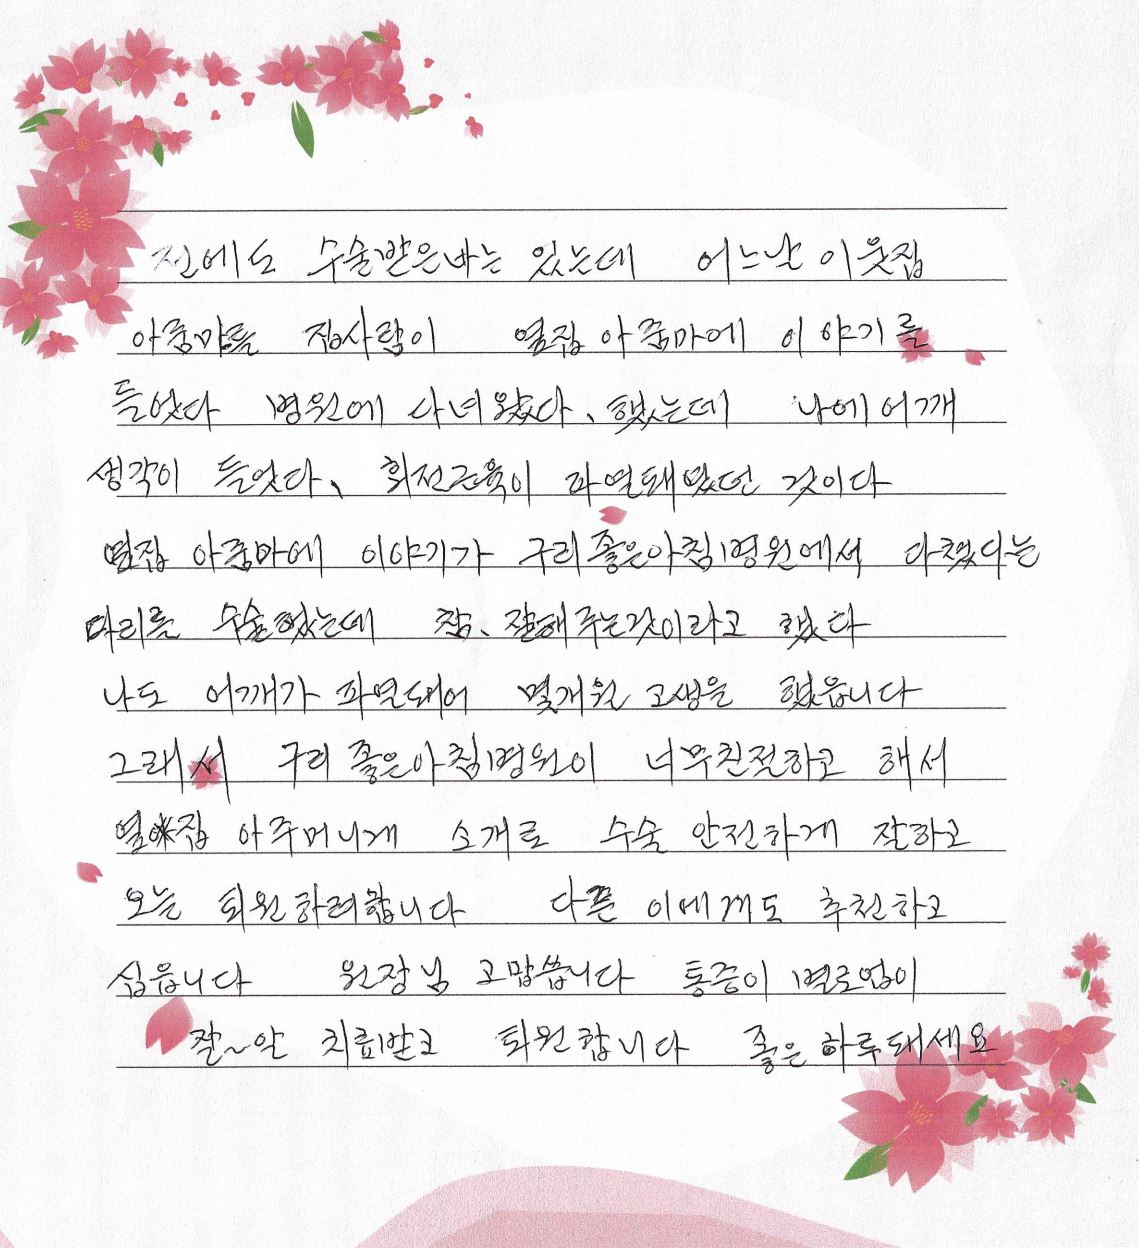 전에도 수술받은바는 있는데 어느날 이웃집
아줌마들 집사람이 옆집 아줌마에 이야기를
들었다 병원에 다녀왔다、했는데 나에 어깨
생각이 들었다、 회전근육이 파열돼었던 것이다
옆집 아줌마에 이야기가 구리좋은아침병원에서 다쳤다는
다리를 수술했는데 참、잘해주는것이라고 했다
나도 어깨가 파열돼어 몇개월 고생을 했읍니다
그래서 구리좋은아침병원이 너무친절하고 해서
옆집 아주머니게 소개로 수술 안전하게 잘하고
오늘 퇴원하려합니다 다른 이에게도 추천하고
십읍니다 원장님 고맙씀니다 통증이 별로없이
잘~안 치료받고 퇴원합니다 좋은하루돼세요